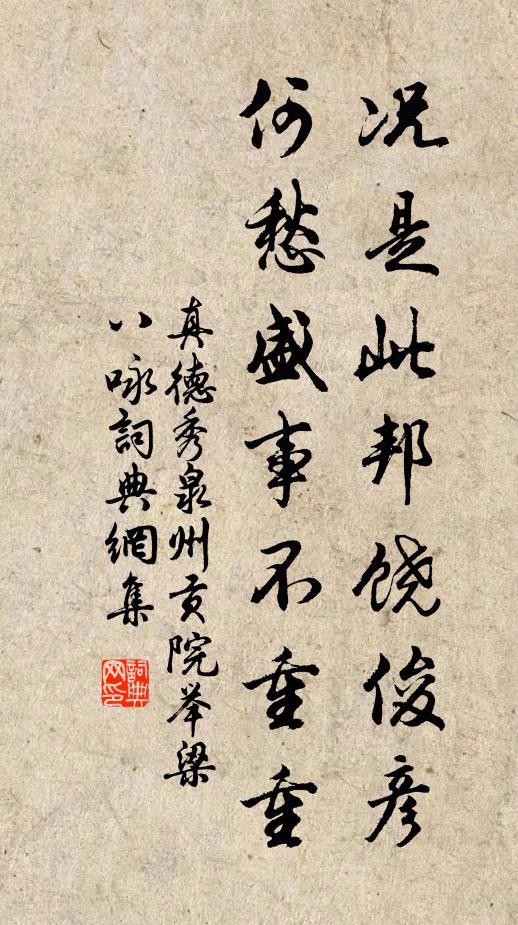 况是此邦饶俊彦
何愁盛事不重重
真德秀泉州贡院举梁
八咏詞典網集
詞典网印